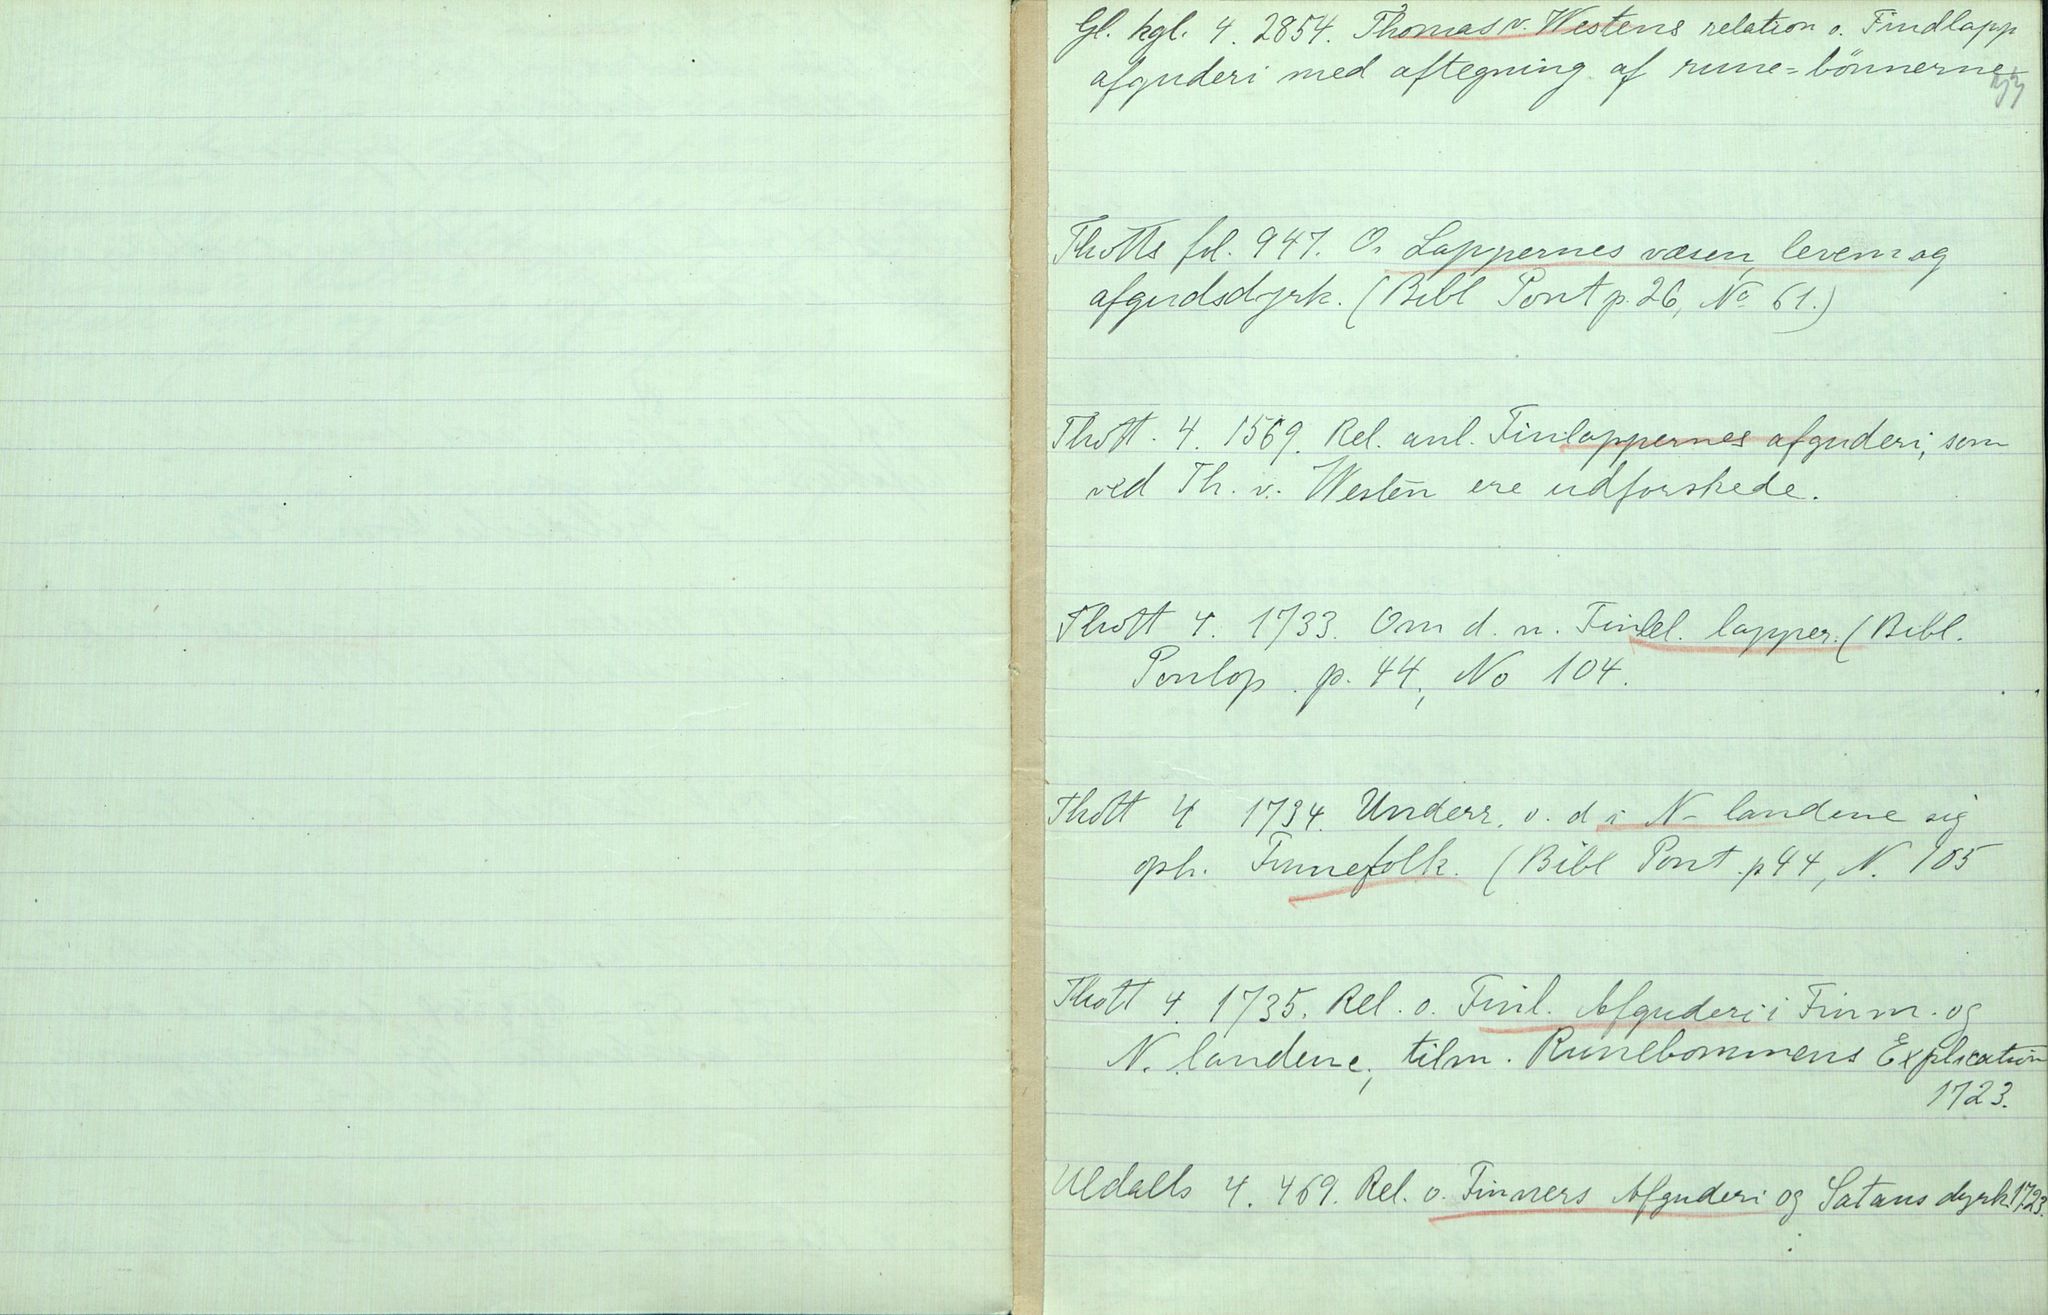 Gl. kgl. 4. 2854. Thomas v. Westens relation o. Findlapp
afguderi med aftegning af rune=bönnerne
Thotts fol. 947. O. Lappernes væsen, levem og
afgudsdyrk. (Bibl Pont p. 26, No 61.)
Thott. 4. 1569. Rel. anl. Finlappernes afguderi, som
ved Th. v. Westen ere udforskede.
Thott 4. 1733. Om d. n. Finlel. lapper. (Bibl.
Pontop. p. 44, No 104.
Thott 4 1734. Underr. o. d i N- landene sig
oph. Finnefolk. (Bibl Pont. p 44, N. 105
Thott 4. 1735. Rel. o. Finl. Afguderi i Finm. og
N. landene, tilm. Runebommens Explication
1723.
Uldalls 4. 469. Rel. o. Finners Afguderi og Satans dyrk. 1723.